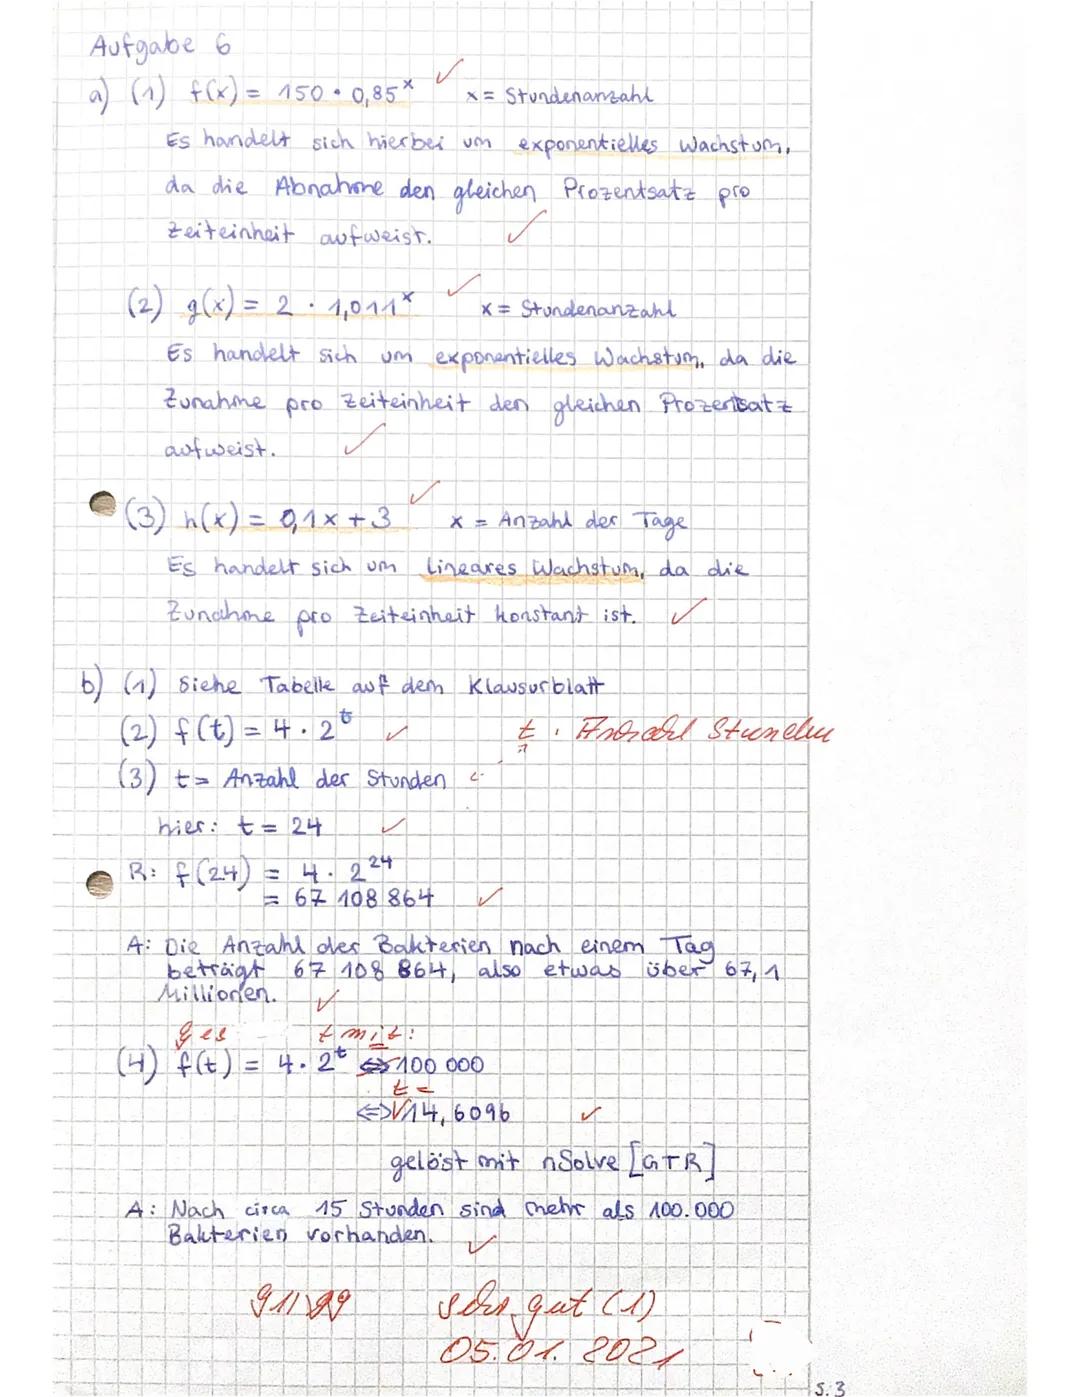 Aufgabe 6
a) (1) f(x) = 150 · 0,85^x ✓ x = Stundenanzahl
Es handelt sich hierbei um exponentielles Wachstum,
da die Abnahme den gleichen Prozentsatz pro
Zeiteinheit aufweist. ✓
(2) g(x) = 2 · 1,011^x ✓ x = Stundenanzahl
Es handelt sich um exponentielles Wachstum, da die
Zunahme pro Zeiteinheit den gleichen Prozentsatz
aufweist. ✓
(3) h(x) = 0,1x + 3 ✓ x = Anzahl der Tage
Es handelt sich um lineares Wachstum, da die
Zunahme pro Zeiteinheit konstant ist. ✓
b) (1) Siehe Tabelle auf dem Klausurblatt
(2) f(t) = 4 · 2^t ✓ t: Anzahl Stunden
(3) t = Anzahl der Stunden
hier: t = 24 ✓
R: f(24) = 4 · 2^24
= 67 108 864 ✓
A: Die Anzahl der Bakterien nach einem Tag
beträgt 67 108 864, also etwas über 67,1
Millionen. ✓
ges t mit:
(4) f(t) = 4 · 2^t = 100 000
t =
⇔ 14,6096 ✓
gelöst mit nSolve [GTR]
A: Nach circa 15 Stunden sind mehr als 100.000
Bakterien vorhanden. ✓
91/99 sehr gut (1)
05.01.2021
S. 3